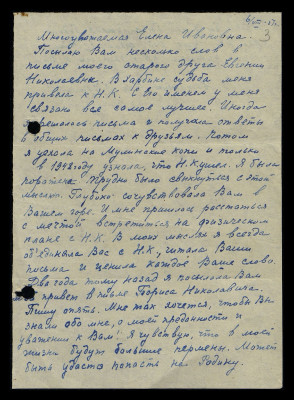 6/III-57г.
3
Многоуважаемая Елена Ивановна
Посылаю Вам несколько слов в
письме моего старого друга Евгении
Николаевны. В Харбине судьба меня
привела к Н.К. С его именем у меня
связано все самое лучшее! Иногда
письма и получала ответы
в общих письмах к друзьям. Потом
я уехала на копи и только
в 1948 году узнала, что Н.К. ушел. Я была
Трудно было свыкнуться с этой
мыслью. Глубоко сочувствовала Вам в
Вашем горе. И мне пришлось расстаться
с мечтой встретиться на физическом
плане с Н.К. В моих мыслях я всегда
объединяла Вас с Н.К., читала Ваши
письма и ценила каждое Ваше слово.
Два года тому назад я посылала Вам
привет в письме Бориса Николаевича.
Пишу опять. Мне так хочется, чтобы Вы
знали обо мне, о моей преданности и
уважении к Вам! Я чувствую, что в моей
жизни будут большие перемены. Может
быть удастся попасть на Родину.